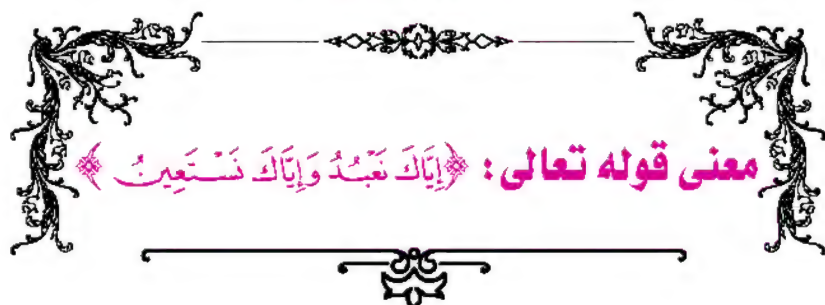 معنى قوله تعالى: ﴿إِيَّاكَ نَعْبُدُ وَإِيَّاكَ نَسْتَعِينُ﴾